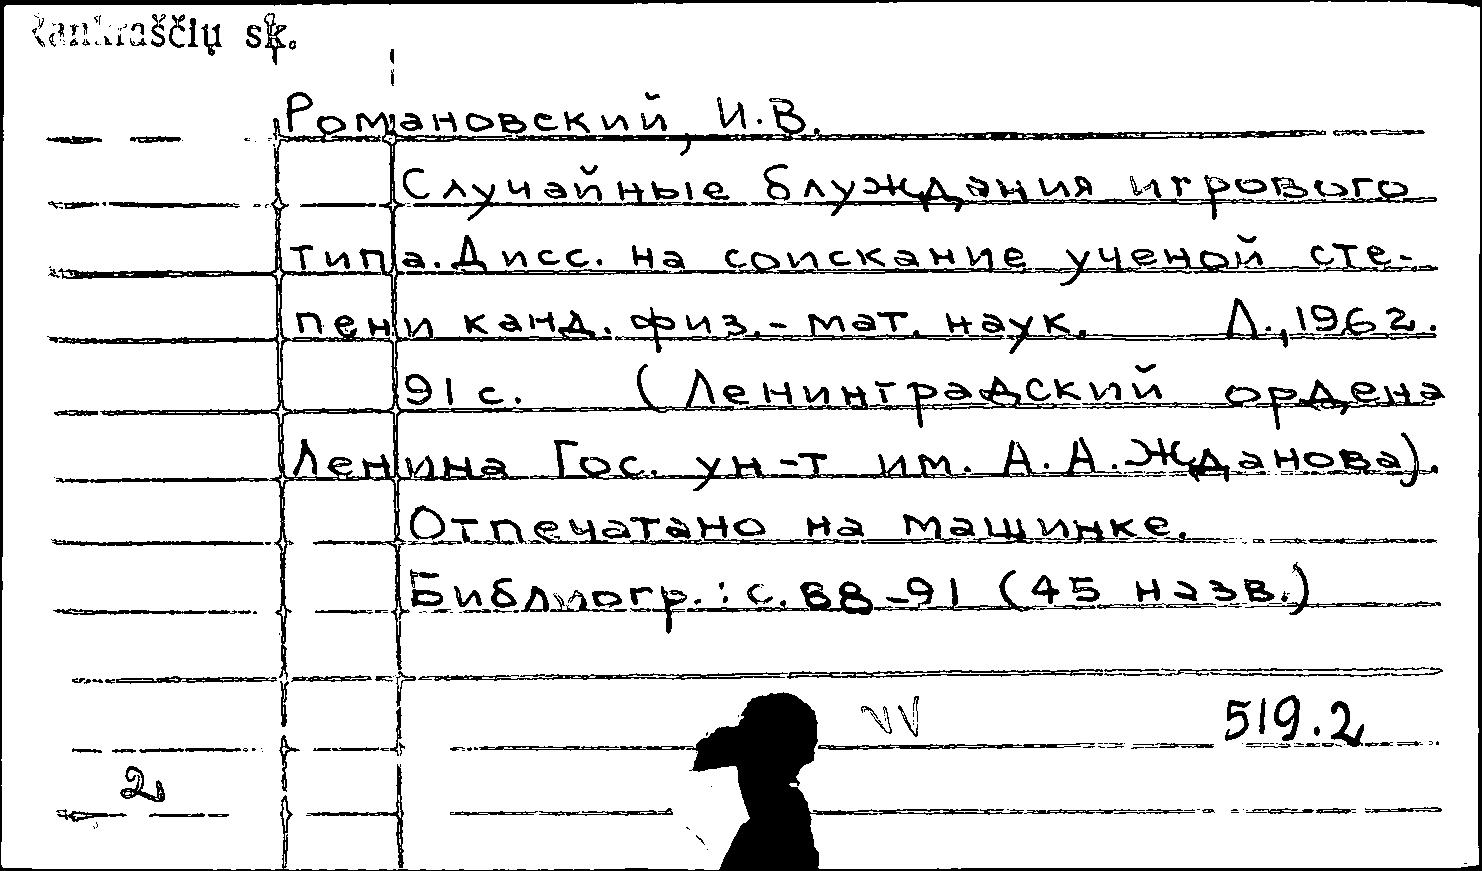 Rankraščių sk.
Романовский, И.В.
Случайные блуждания игрового
типа. Дисс. на соискание ученой сте-
пени канд. физ.-мат. наук. Л., 1962.
91 с. (Ленинградский ордена
Ленина Гос. ун-т им. А.А.Жданова).
Отпечатано на машинке.
Библиогр.: с. 88-91 (45 назв.)
519.2
2